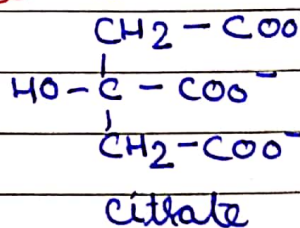 CH2 - COO
HO - C - COO⁻
CH2 - COO⁻
Citrate